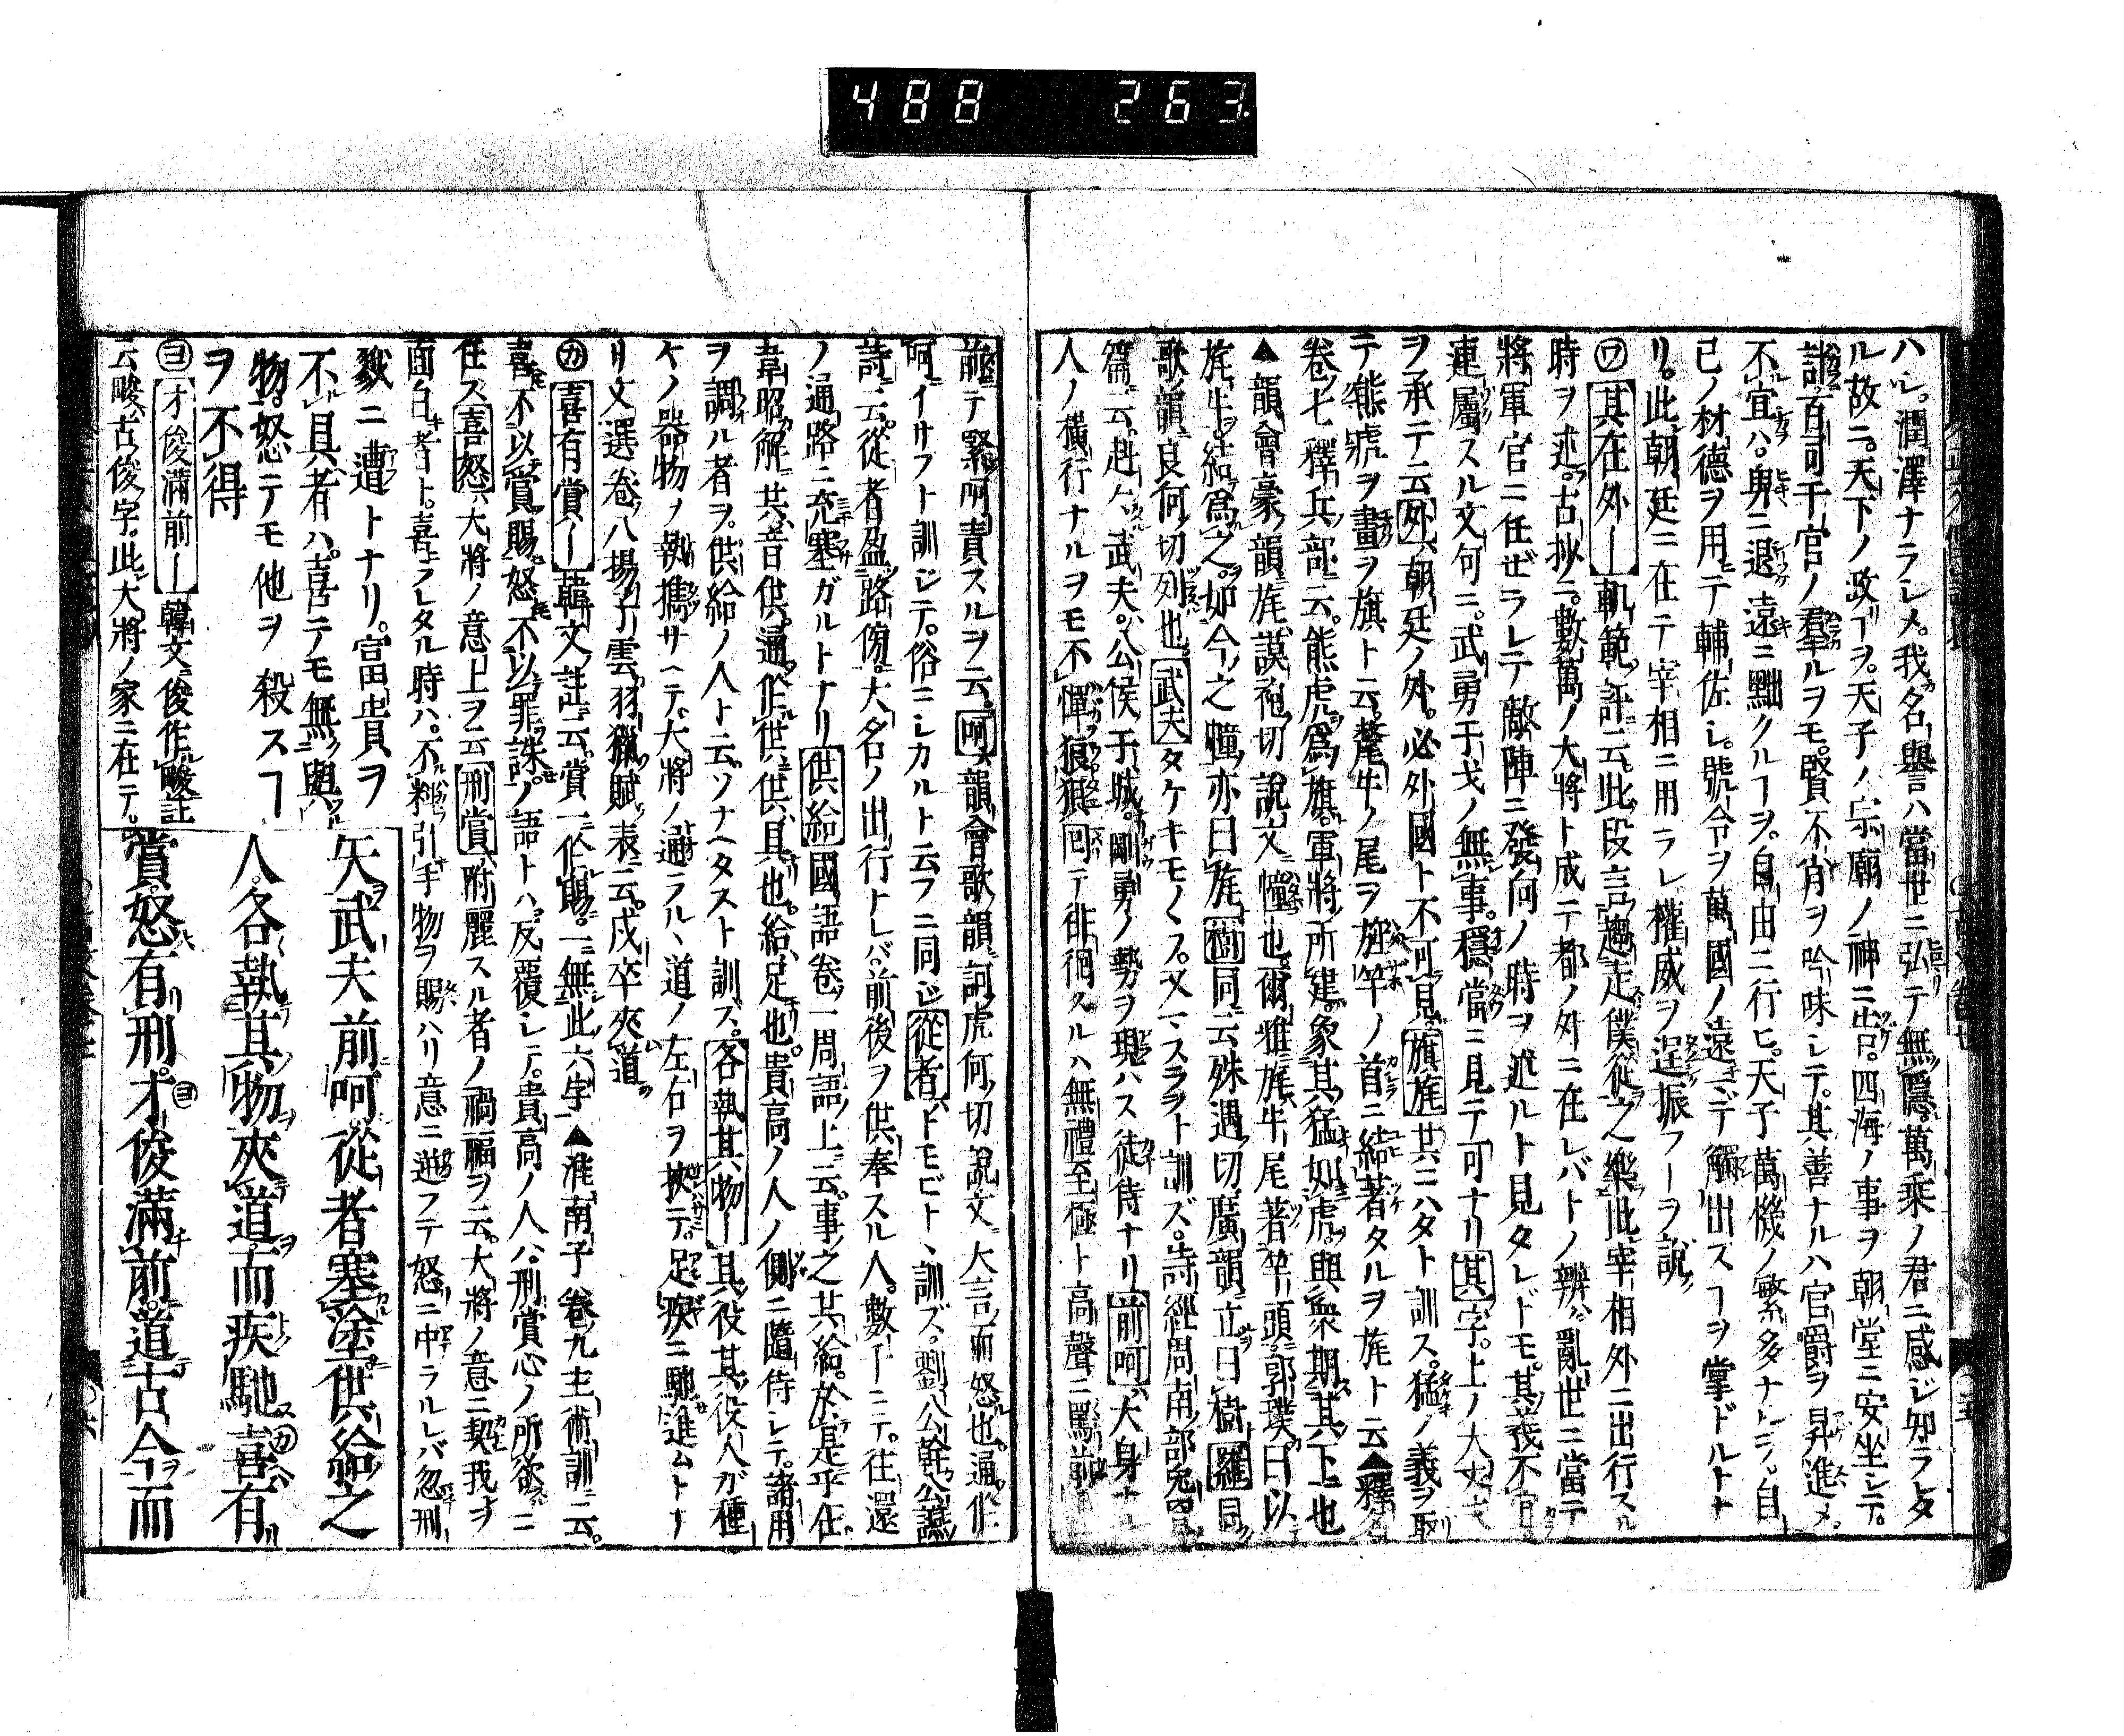 488 263
ハシ。潤澤ナラシメ。我名譽ハ當世ニ弘テ無隱。萬乘ノ君ニ感ジ知ラレタ
ル故ニ。天下ノ政ヿヲ。天子ノ宗廟ノ神ニ告。四海ノ事ヲ朝堂ニ安坐シテ。
諸百司千官ノ羣ルヲモ。賢不肖ヲ吟味シテ。其善ナルハ官爵ヲ昇進メ。
不宜ハ。卑ニ退遠ニ黜クルヿヲ。自由ニ行ヒ。天子萬機ノ繁多ナレバ。自
己ノ材德ヲ用テ輔佐シ。號令ヲ萬國ノ遠マデ觸出スヿヲ掌ドルトナ
リ。此朝廷ニ在テ宰相ニ用ラレ權威ヲ逞振フヿヲ說
㋻其在外ー軌範評云。此段言趨走僕從之樂此宰相外ニ出行スル
時ヲ述。古抄ニ。數萬ノ大將ト成テ都ノ外ニ在レバトノ辨ハ。亂世ニ當テ
將軍官ニ任ゼラレテ敵陣ニ發向ノ時ヲ述ルト見タレドモ。其義不宜
連屬スル文句ニ。武勇干戈ノ無事。穩當ニ見テ可ナリ其字。上ノ大丈夫
ヲ承テ云外ハ朝廷ノ外。必外國ト不可見旗旄其ニハタト訓ス。猛ノ義ヲ取
テ熊虎ヲ畫ヲ旗ト云。氂牛ノ尾ヲ旌竿ノ首ニ結著タルヲ旄ト云▲釋名
卷七釋兵部云。熊虎爲旗。軍將所建。象其猛如虎。與衆期其下也
▲韻會豪韻旄謨袍切說文幢也。爾雅旄牛尾著竿頭郭璞曰以
旄牛。結爲之。如今之幢亦曰旄樹同云殊遇切廣韻立曰樹羅同
歌韻良何切列也武夫タケキモノヽフ。又ハマスラヲト訓ズ。詩經周南部兔罝
篇云。赳々武夫。公侯干城。剛勇ノ勢ヲ現ハス徒侍ナリ前呵ハ大身ナル
人ノ橫行ナルヲモ不憚狼狽回テ徘徊スルハ無禮至極ト高聲ニ罵前
前テ緊呵責スルヲ云。呵ハ韻會歌韻訶虎何切說文大言而怒也。通作
呵イサフト訓ジテ。俗ニシカルト云フニ同ジ從者ハトモビトヽ訓ズ。劉公幹公讌
詩云。從者盈路傍。大名ノ出行トレバ。前後ヲ供奉スル人。數十ニテ。往還
ノ通路ニ充塞ガルトナリ供給國語卷一周語上云。事之共給。於是乎在
韋昭解共音供。通作供供具也。給足也。貴高ノ人ノ側ニ隨侍シテ。諸用
ヲ調ル者ヲ。供給ノ人ト云。ソナヘタスト訓ス。各執其物ー其役其役人ガ種
ケノ器物ノ執攜サヘテ。大將ノ通ラルヽ道ノ左右ヲ挾テ。足疾ニ馳進ムトナ
リ文選卷八揚子雲羽獵賦表云。戍卒夾道
㋕喜有賞ー韓文註云。賞一作賜。一無此六字▲淮南子卷九主術訓云。
喜不以賞賜。怒不以罪誅。ノ語トハ。反覆シテ。貴高ノ人ハ。刑賞心ノ所欲ニ
任ス喜怒ハ大將ノ意上ヲ云刑賞ハ附麗スル者ノ禍福ヲ云。大將ノ意ニ契我ヲ
面白者ト。喜ラレタル時ハ。不料引手物ヲ賜ハリ意ニ逆フテ怒ニ中ラルレバ忽刑
戮ニ遭トナリ。富貴ヲ
不具者ハ。喜テモ無與
物。怒ニテモ他ヲ殺スヿ
ヲ不得
矢武夫前呵從者塞塗供給之
人。各執其物夾道而疾馳喜有
賞。怒有刑。才俊滿前。道古今而
㋵才俊滿前ー韓文俊作畯註
云畯古俊字。此大將ノ家ニ在テ。